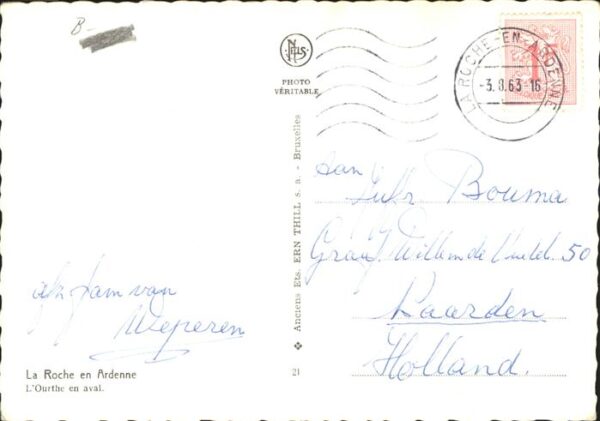 B-
NELS
PHOTO
VÉRITABLE
LA ROCHE-EN-ARDENNE
-3.9.63-16
aan
Juffr Bouma
Graaf Willem de Oudel. 50
Naarden
Holland.
afz fam van
Weperen
La Roche en Ardenne
L'Ourthe en aval.
Anciens Ets. ERN THILL s. a. - Bruxelles
21